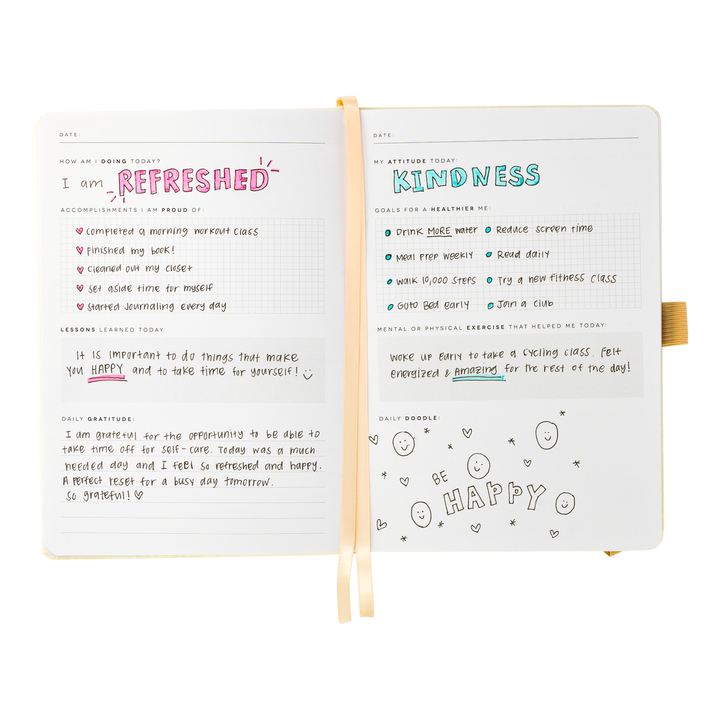 DATE:
HOW AM I DOING TODAY?
I am REFRESHED
ACCOMPLISHMENTS I AM PROUD OF:
completed a morning workout class
finished my book!
cleaned out my closet
set aside time for myself
started journaling every day
LESSONS LEARNED TODAY:
It is important to do things that make
you HAPPY and to take time for yourself!
DAILY GRATITUDE:
I am grateful for the opportunity to be able to
take time off for self-care. Today was a much
needed day and I feel so refreshed and happy.
A perfect reset for a busy day tomorrow.
So grateful!
DATE:
MY ATTITUDE TODAY:
KINDNESS
GOALS FOR A HEALTHIER ME:
Drink MORE water
Reduce screen time
Meal prep weekly
Read daily
Walk 10,000 steps
Try a new fitness class
Go to Bed early
Join a club
MENTAL OR PHYSICAL EXERCISE THAT HELPED ME TODAY:
Woke up early to take a cycling class. Felt
energized & Amazing for the rest of the day!
DAILY DOODLE:
BE
HAPPY